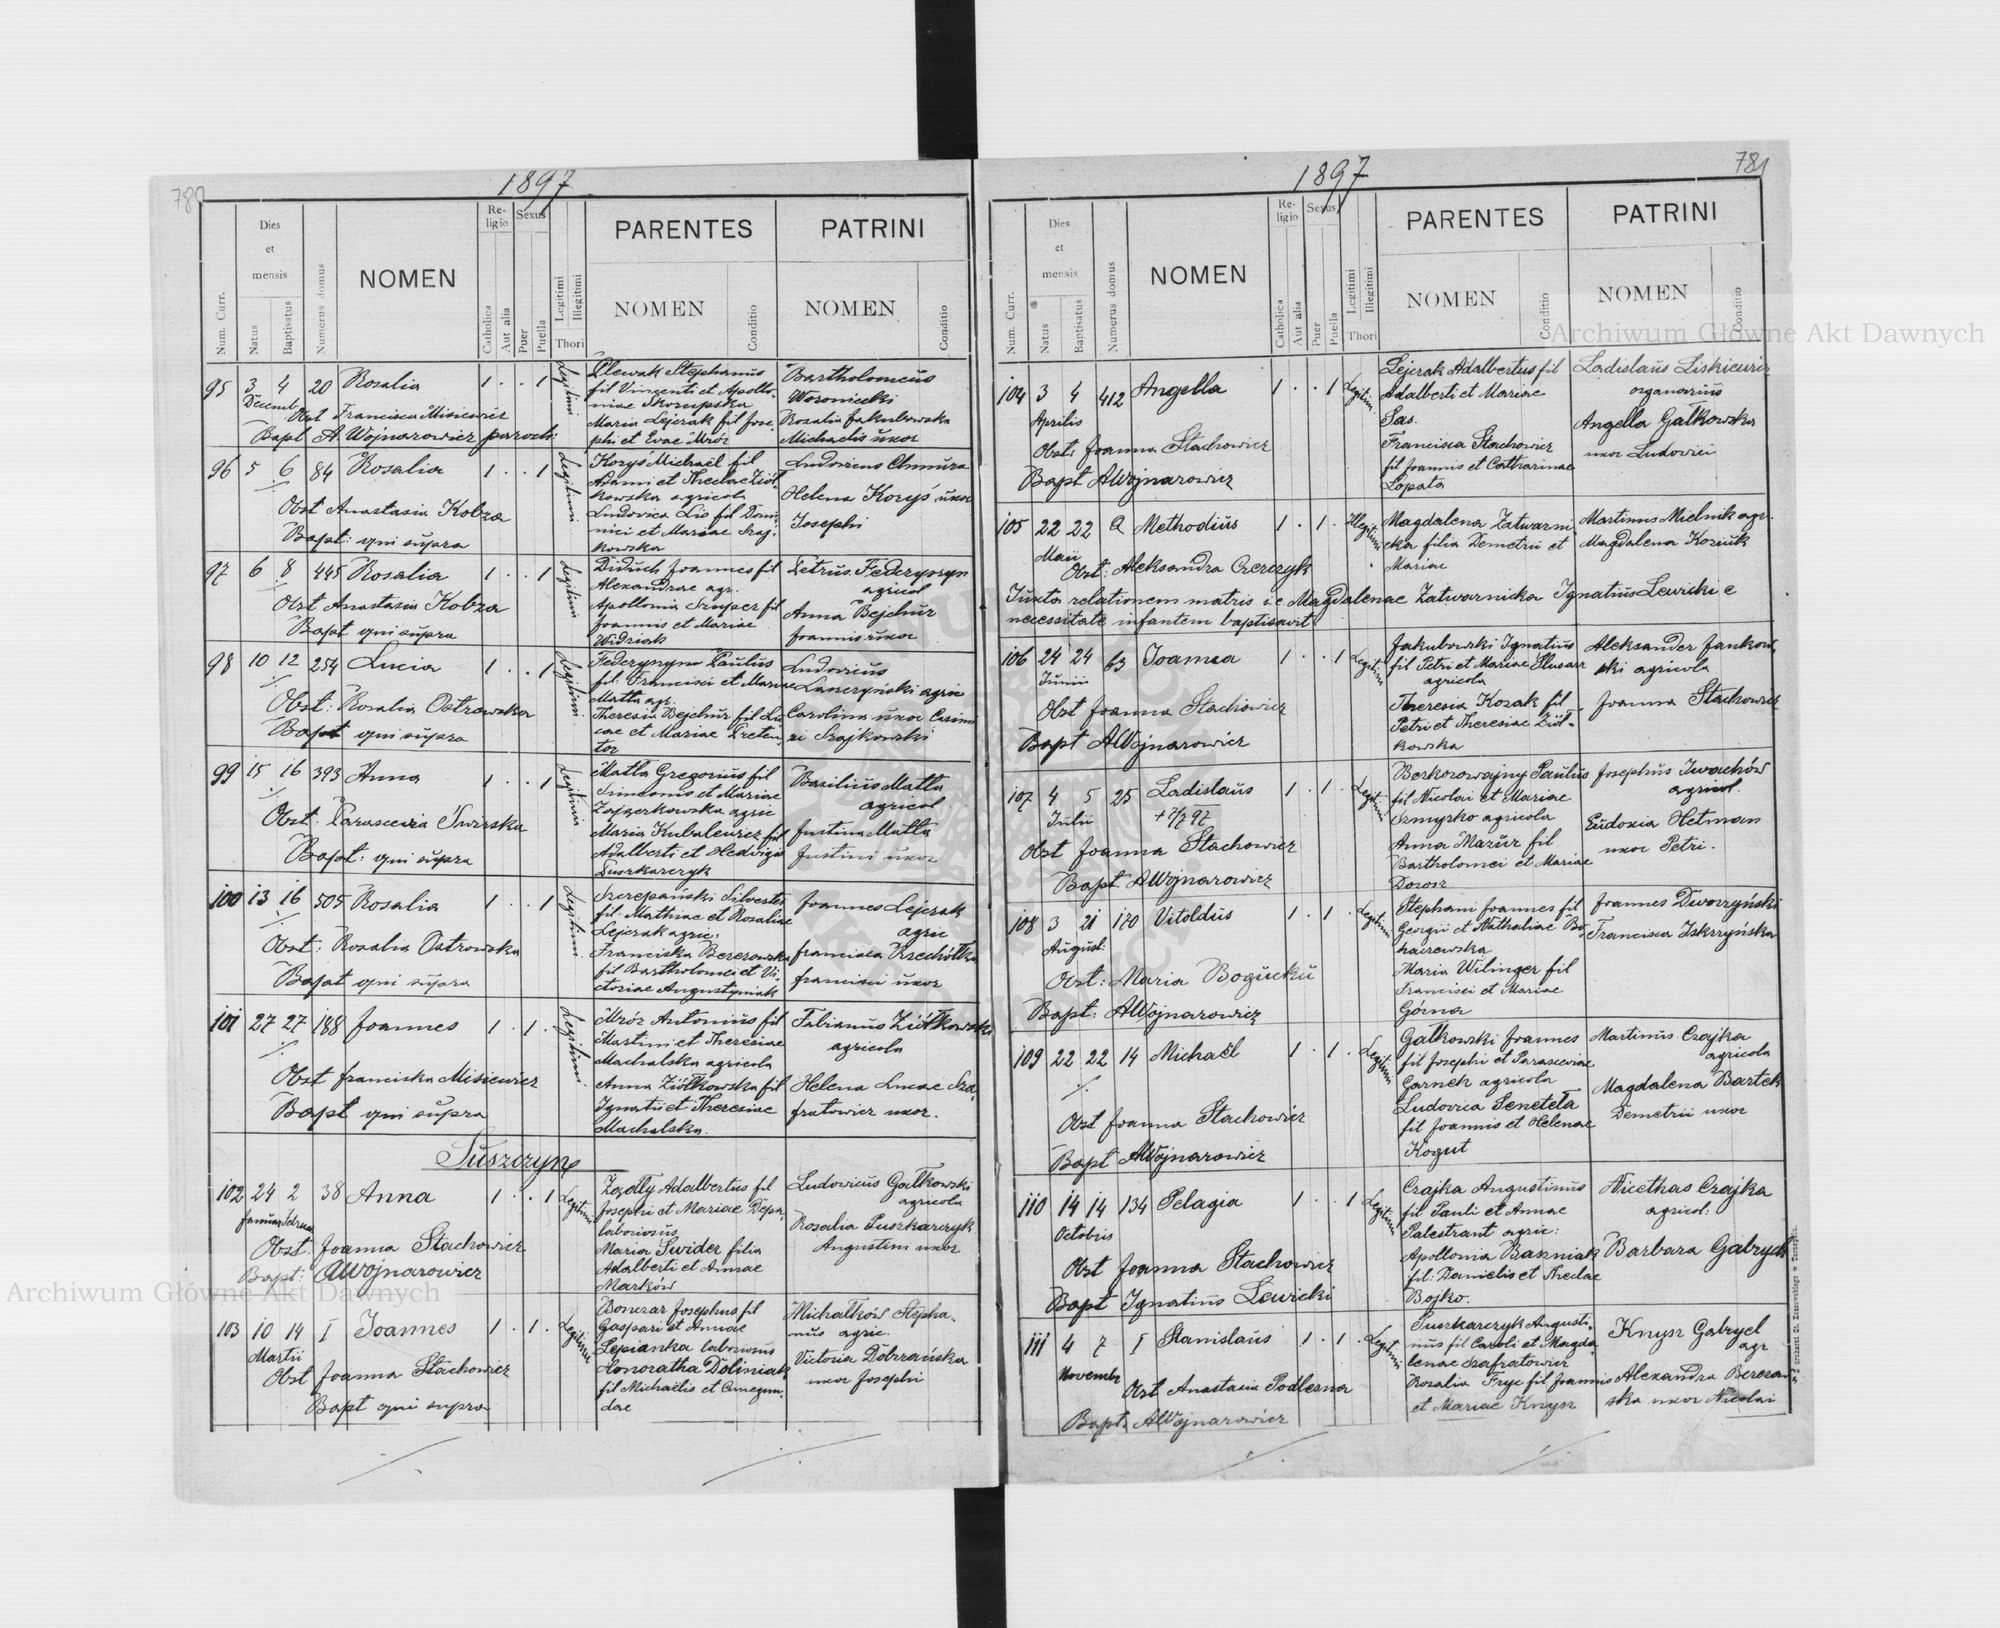 780
1897
Num. Curr.
Dies et mensis
Natus
Baptisatus
Numerus domus
NOMEN
Religio
Catholica
Aut alia
Sexus
Puer
Puella
Legitimi
Illegitimi
Thori
PARENTES
NOMEN
Conditio
PATRINI
NOMEN
Conditio
95 3 4 20 Rosalia 1 . . 1 Legitimi
Decemb.
Obst Francisca Misiewicz
Bapt A. Wojnarowicz paroch:
Plewak Stephanus
fil Vincenti et Apollo-
niae Skorupska
Maria Lejczak fil Jose-
phi et Evae Mróz
Bartholomeus
Woroniecki
Rosalia Jakubowska
Michaelis uxor
96 5 6 84 Rosalia 1 . . 1 Legitimi
Obst Anastasia Kobza
Bapt: qui supra
Koryś Michaël fil
Adami et Theclae Ziół-
kowska agricola
Ludovica Lis fil Domi-
nici et Mariae Szaj-
kowska
Ludovicus Chmura
Helena Koryś uxor
Josephi
97 6 8 445 Rosalia 1 . . 1 Legitimi
Obst Anastasia Kobza
Bapt qui supra
Diduch Joannes fil
Alexandrae agr.
Apollonia Szuper fil
Joannis et Mariae
Widziak
Petrus Federyszyn
agricol
Anna Bejchur
Joannis uxor
98 10 12 254 Lucia 1 . . 1 Legitimi
Obst: Rosalia Ostrowska
Bapt qui supra
Federyszyn Paulus
fil: Francisci et Mariae
Matla agr.
Theresia Bejchur fil Lu-
cae et Mariae Preten-
tor
Ludovicus
Lanczyński agric
Carolina uxor Casimi-
ri Szajkowski
99 15 16 393 Anna 1 . . 1 Legitimi
Obst: Parascevia Swirska
Bapt: qui supra
Matla Gregorius fil
Simeonis et Mariae
Zajzerkowska agric
Maria Kubalewicz fil
Adalberti et Hedvigis
Puszkarczyk
Basilius Matla
agricol
Justina Matla
Justini uxor
100 13 16 505 Rosalia 1 . . 1 Legitimi
Obst: Rosalia Ostrowska
Bapt qui supra
Szczepański Silvester
fil: Mathiae et Rosaliae
Lejczak agric:
Franciska Berezowska
fil Bartholomei et Vi-
ctoriae Augustyniak
Joannes Lejczak
agric
Francisca Krechotka
Francisci uxor
101 27 27 188 Joannes 1 . 1 . Legitimi
Obst Franciska Misiewicz
Bapt qui supra
Mróz Antonius fil
Martini et Theresiae
Machalska agricola
Anna Ziółkowska fil
Ignatii et Theresiae
Machalska.
Fabianus Ziółkowski
agricola
Helena Lucae Sza-
fratowicz uxor.
Suszczyn
102 24 2 38 Anna 1 . . 1 Legitimi
Januar Februar
Obst: Joanna Stachowicz
Bapt: AWojnarowicz
Zagally Adalbertus fil
Josephi et Mariae Depa-
laboriosus
Maria Świder filia
Adalberti et Annae
Marków
Ludovicus Gałkowski
agricola
Rosalia Puszkarczyk
Augustini uxor
103 10 14 1 Joannes 1 . 1 . Legitimi
Martii
Obst Joanna Stachowicz
Bapt qui supra
Bonczar Josephus fil
Gaspari et Annae
Lepianka laboriosus
Honoratha Doliniak
fil Michaëlis et Cunegun-
dae
Michałków Stepha-
nus agric.
Victoria Dobrzańska
uxor Josephi
781
1897
Num. Curr.
Dies et mensis
Natus
Baptisatus
Numerus domus
NOMEN
Religio
Catholica
Aut alia
Sexus
Puer
Puella
Legitimi
Illegitimi
Thori
PARENTES
NOMEN
Conditio
PATRINI
NOMEN
Conditio
104 3 4 412 Angella 1 . . 1 Legitimi
Aprilis
Obst: Joanna Stachowicz
Bapt AWojnarowicz
Lejczak Adalbertus fil
Adalberti et Mariae
Sas.
Francisca Stachowicz
fil Joannis et Catharinae
Łopata
Ladislaus Liskiewicz
organarius
Angella Gałkowska
uxor Ludovici
105 22 22 a Methodius 1 . 1 . Illegitimi
Maii
Obst: Aleksandra Czerczyk
Magdalena Zatwarni-
cka filia Demetrii et
Mariae
Martinus Mielnik agr.
Magdalena Koziuk
Juxta relationem matris i.e Magdalenae Zatwarnicka Ignatius Lewicki e
necessitate infantem baptisavit
106 24 24 63 Joanna 1 . . 1 Legitimi
Junii
Obst Joanna Stachowicz
Bapt AWojnarowicz
Jakubowski Ignatius
fil Petri et Mariae Slusarz
agricola
Theresia Kozak fil
Petri et Theresiae Ziół-
kowska
Aleksander Jankow-
ski agricola
Joanna Stachowicz
107 4 5 25 Ladislaus 1 . 1 . Legitimi
Julii + 7/7 97
Obst Joanna Stachowicz
Bapt AWojnarowicz
Berkorowajny Paulus
fil Nicolai et Mariae
Szmyrko agricola
Anna Mazur fil
Bartholomei et Mariae
Dorosz
Josephus Iwachów
agricol.
Eudoxia Hetman
uxor Petri.
108 3 21 170 Vitoldus 1 . 1 . Legitimi
August:
Obst: Maria Bogucku
Bapt: AWojnarowicz
Stephani Joannes fil
Georgii et Nathaliae Bo-
haizewska
Maria Wilinger fil
Francisci et Mariae
Górna
Joannes Dworzyński
Francisca Iskrzyńska
109 22 22 14 Michaël 1 . 1 . Legitimi
Obst Joanna Stachowicz
Bapt AWojnarowicz
Gałkowski Joannes
fil Josephi et Parasceviae
Garneh agricola
Ludovica Peneteta
fil Joannis et Helenae
Kogut
Martinus Czajka
agricola
Magdalena Bartek
Demetrii uxor
110 14 14 134 Pelagia 1 . . 1 Legitimi
Octobris
Obst Joanna Stachowicz
Bapt Ignatius Lewicki
Czajka Augustinus
fil Pauli et Annae
Palestrant agric:
Apollonia Bazniak
fil: Danielis et Theclae
Bojko.
Nicethas Czajka
agricol:
Barbara Gabrych
111 4 7 1 Stanislaus 1 . 1 . Legitimi
Novembr
Obst Anastasia Podlesna
Bapt. AWojnarowicz
Puszkarczyk Augusti-
nus fil Caroli et Magda-
lenae Szafratowicz
Rosalia Fryc fil Joannis
et Mariae Knysz
Knysz Gabryel
agr
Alexandra Berezow-
ska uxor Nicolai
Archiwum Główne Akt Dawnych
Archiwum Główne Akt Dawnych